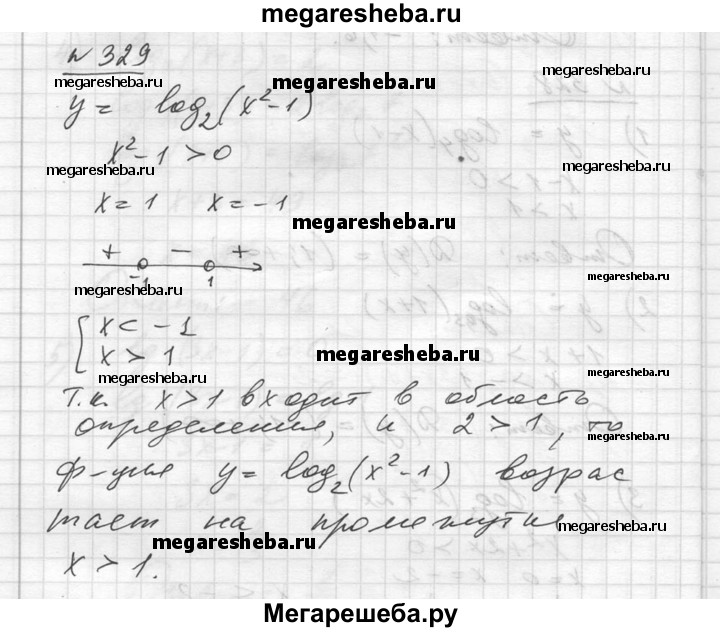 megaresheba.ru
№ 329
megaresheba.ru megaresheba.ru megaresheba.ru
y = log₂(x²-1)
x²-1 > 0
megaresheba.ru megaresheba.ru
x = 1 x = -1
megaresheba.ru
+ - +
-1 1
megaresheba.ru megaresheba.ru
{ x < -1
x > 1
megaresheba.ru
megaresheba.ru
Т.к. x > 1 входит в область
определения, и 2 > 1, то
megaresheba.ru
ф-ция y = log₂(x²-1) возрас
тает на промежутке
megaresheba.ru
megaresheba.ru
x > 1.
Мегарешеба.ру